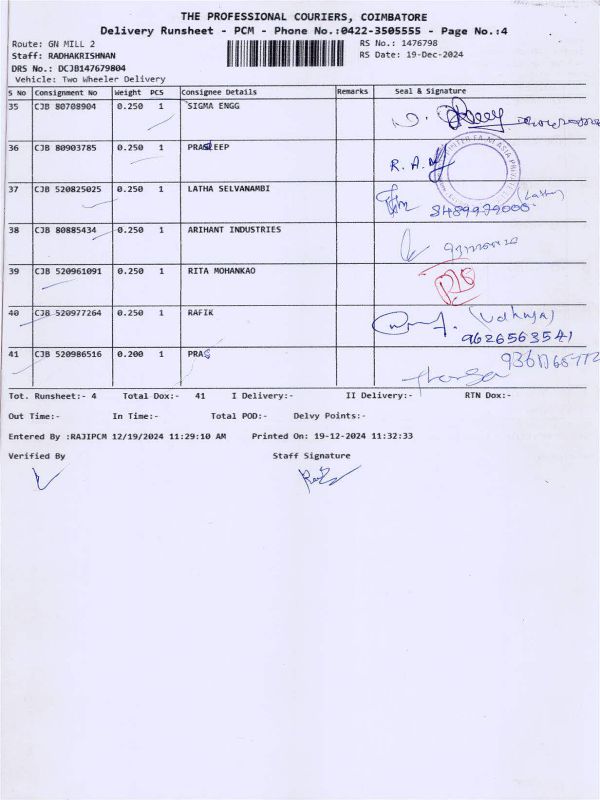 THE PROFESSIONAL COURIERS, COIMBATORE
Delivery Runsheet - PCM - Phone No.:0422-3505555 - Page No.:4
Route: GN MILL 2 RS No.: 1476798
Staff: RADHAKRISHNAN RS Date: 19-Dec-2024
DRS No.: DCJB147679804
Vehicle: Two Wheeler Delivery
S No Consignment No Weight PCS Consignee Details Remarks Seal & Signature
35 CJB 80708904 0.250 1 SIGMA ENGG
36 CJB 80903785 0.250 1 PRADEEP R.A.
37 CJB 520825025 0.250 1 LATHA SELVANAMBI (Latha)
8489979000
38 CJB 80885434 0.250 1 ARIHANT INDUSTRIES
39 CJB 520961091 0.250 1 RITA MOHANKAO
40 CJB 520977264 0.250 1 RAFIK (Udhaya)
9626563541
41 CJB 520986516 0.200 1 PRAS
Tot. Runsheet:- 4 Total Dox:- 41 I Delivery:- II Delivery:- RTN Dox:-
Out Time:- In Time:- Total POD:- Delvy Points:-
Entered By :RAJIPCM 12/19/2024 11:29:10 AM Printed On: 19-12-2024 11:32:33
Verified By Staff Signature